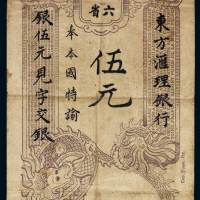 六省
東方滙理銀行
伍元
奉本國特諭
銀伍元見字交銀